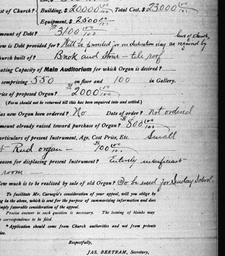 st of Church? Building, $20000 00/100 Total Cost, $23000 00/100
Equipment, $2500 00/100
Amount of Debt? 3100 00/100
is Debt provided for? Will be provided for on dedication day as required by
law of Church
Church built of? Brick and Stone - tile roof
ating Capacity of Main Auditorium for which Organ is desired?
comprising 550 on floor and 100 in Gallery.
rice of proposed Organ? 2000 00/100
(Form should not be returned till this has been inquired into and settled.)
as new Organ been ordered? No Date of order? not ordered
mount already raised toward purchase of Organ? $800 00/100
articulars of present Instrument, Age, Cost Price, Etc. Small
Reed organ - 100 00/100
eason for displacing present Instrument? Entirely insufficient
room -
ow much is to be realized by sale of old Organ? To be used for Sunday School.
To facilitate Mr. Carnegie's consideration of your appeal, will you oblige by
ing in the above, which is sent for the purpose of summarizing information and does
imply favorable consideration of the appeal.
Precise answer to each question is necessary. The leaving of blanks may
correspondence to be required.
Application should come from Church authorities and not from private
Respectfully,
JAS. BERTRAM, Secretary,